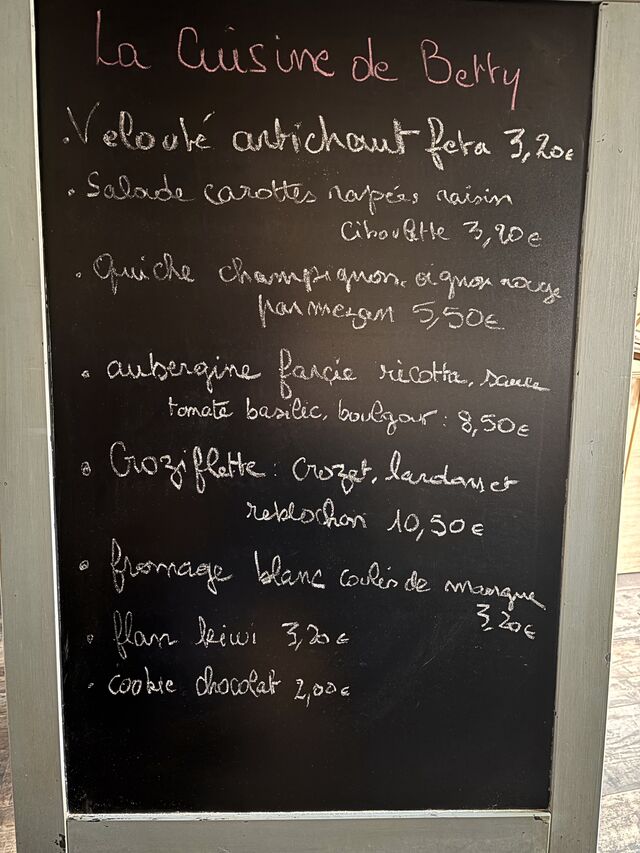 La Cuisine de Betty
. Velouté artichaut feta 3,20€
. Salade carottes rapées raisin
ciboulette 3,20€
. Quiche champignon, oignon rouge
parmezan 5,50€
. aubergine farcie ricotta, sauce
tomate basilic, boulgour : 8,50€
. Croziflette : crozet, lardons et
reblochon 10,50€
. fromage blanc coulis de mangue
3,20€
. flan kiwi 3,20€
. cookie chocolat 2,00€